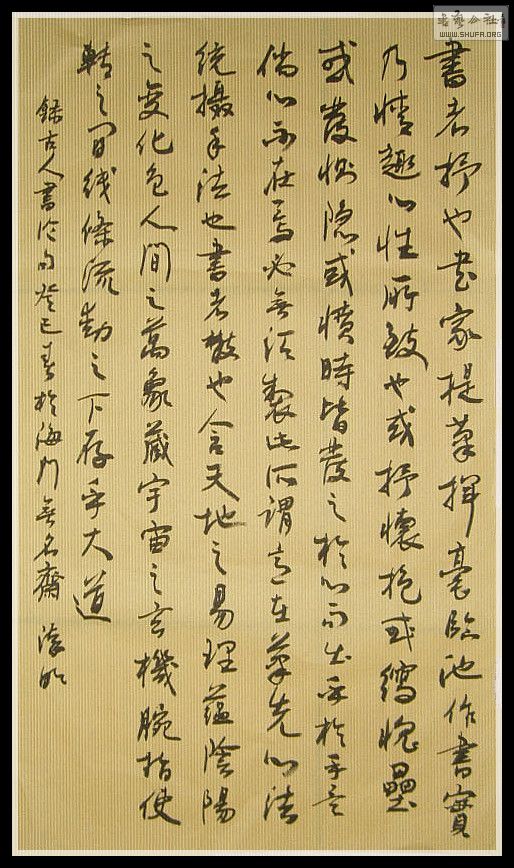 書者抒也書家提筆揮毫臨池作書實
乃情趣心性所致也或抒懷抱或瀉塊壘
或發惻隱或憤時皆發之於心而出乎於手
倘心不在焉必無須製此所謂意在筆先心法
統攝手法也書者散也含天地之易理蘊陰陽
之變化包人間之萬象藏宇宙之玄機腕指使
轉之間线條流動之下存乎大道
錄古人書論句癸巳春於海門無名齋
WWW.SHUFA.ORG